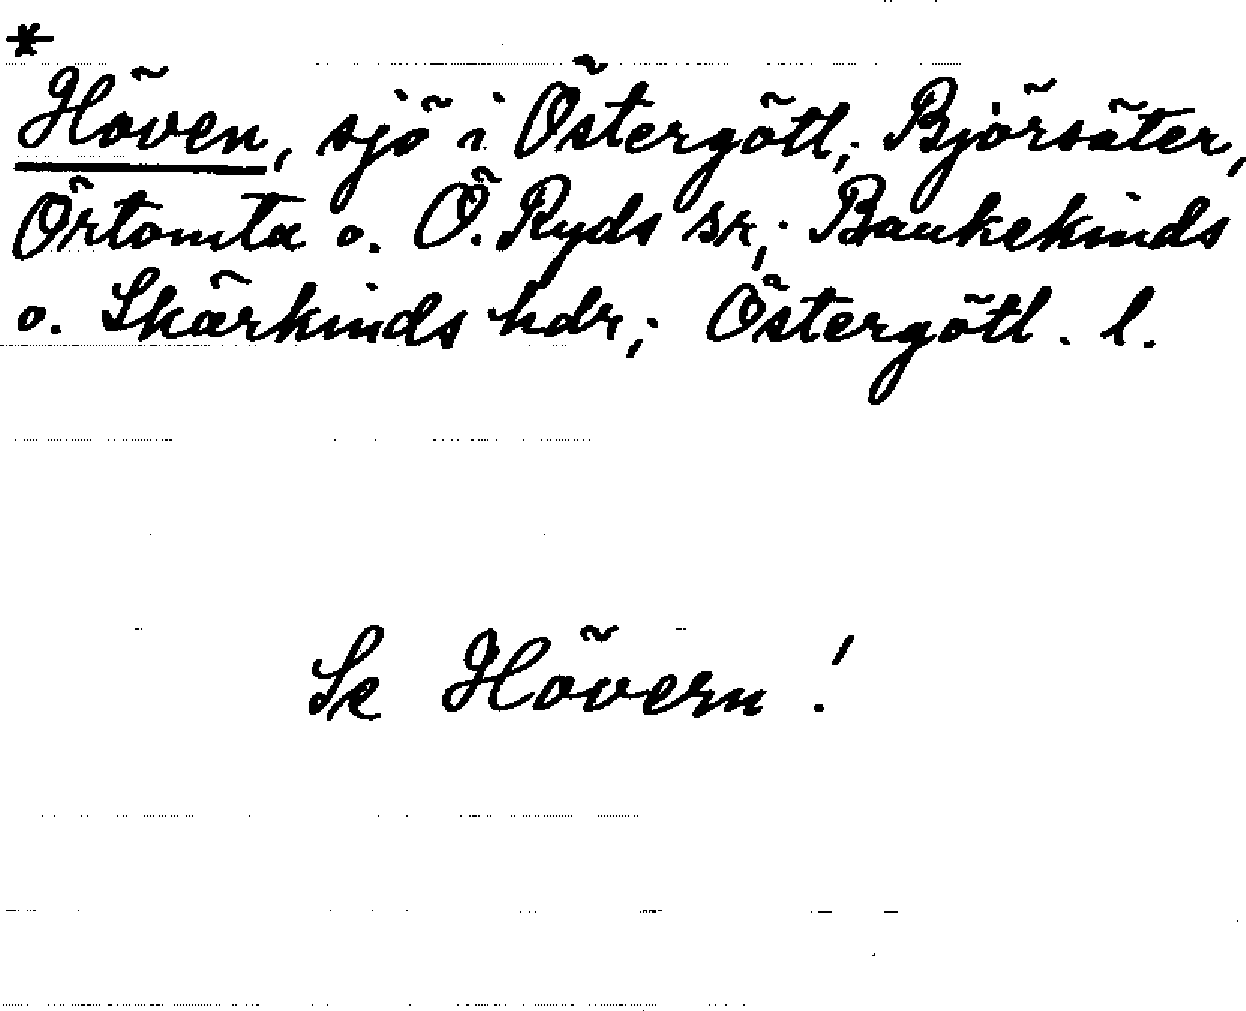 *
Höven, sjö i Östergötl; Björsäter,
Örtomta o. Ö. Ryds sr; Bankekinds
o. Skärkinds hdr; Östergötl. l.
Se Hövern!